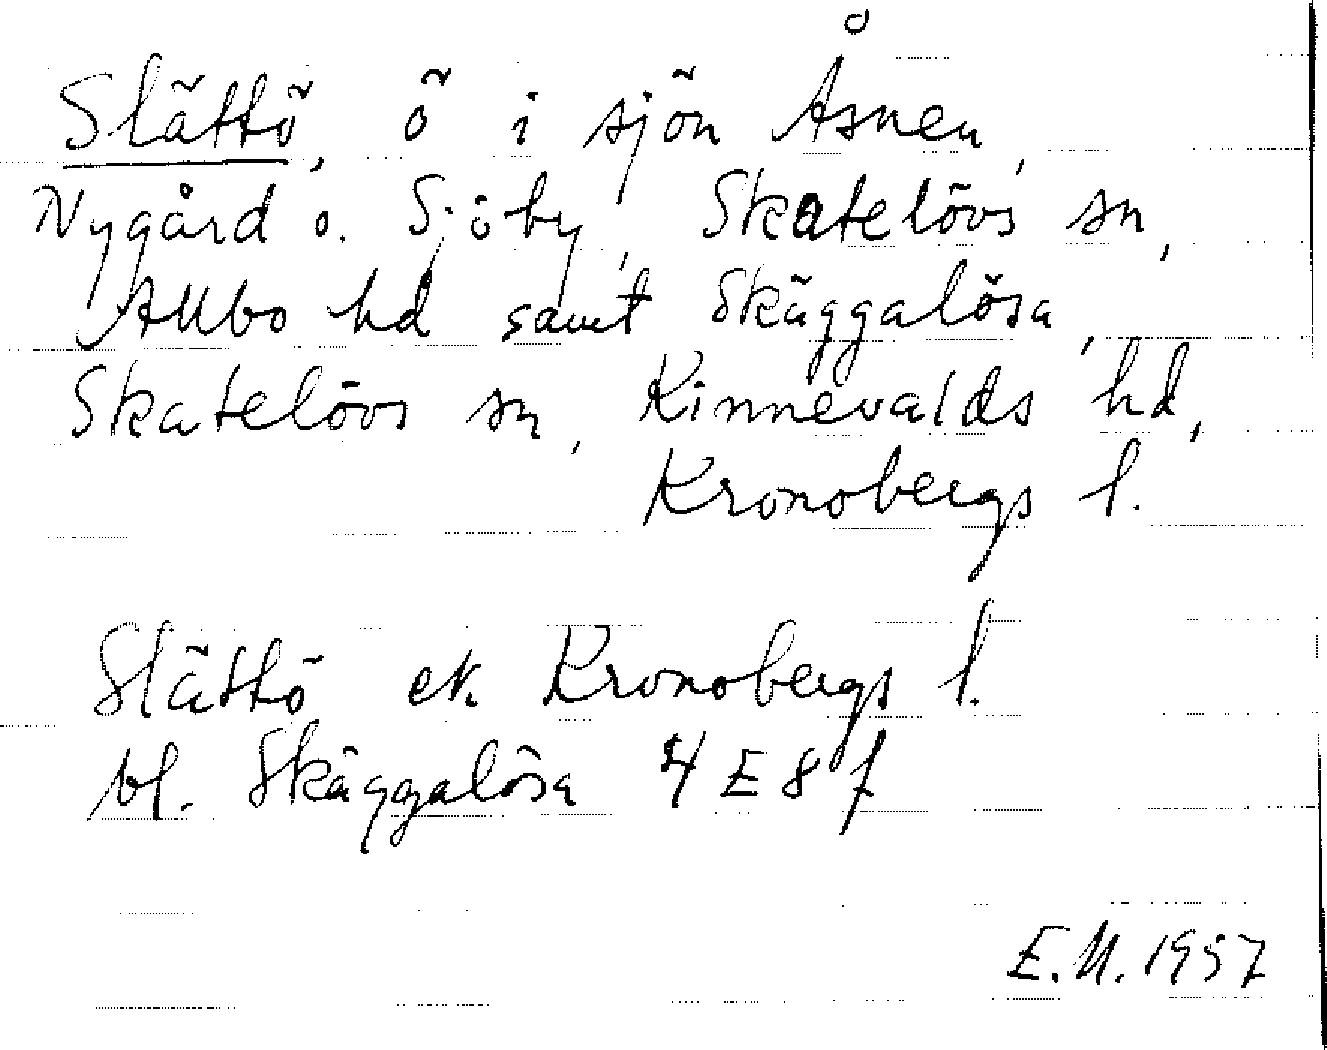 Slättö, ö i sjön Åsnen,
Nygård o. Sjöby, Skatelövs sn,
Allbo hd samt Skäggalösa,
Skatelövs sn, Kinnevalds hd,
Kronobergs l.
Slättö ek. Kronobergs l.
bl. Skäggalösa 4 E 8 f
E.M. 1957